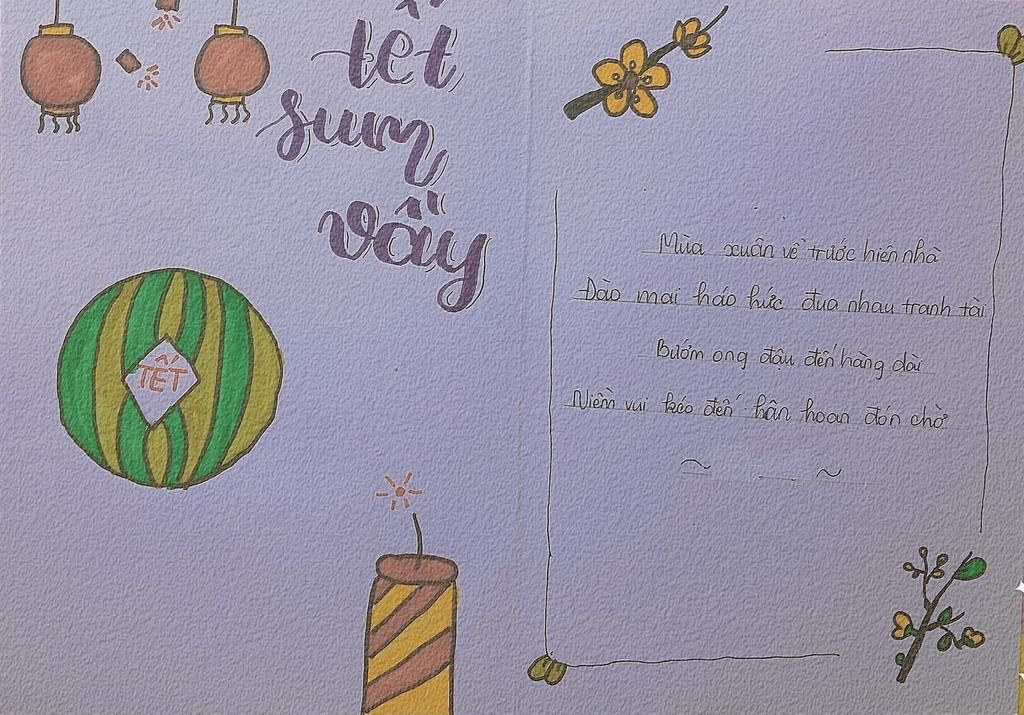 tết
sum
vầy
TẾT
Mùa xuân về trước hiên nhà
Đào mai háo hức đua nhau tranh tài
Bướm ong đậu đến hàng dài
Niềm vui kéo đến hân hoan đón chờ